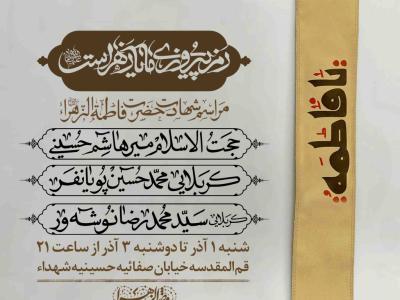 رمز پیروزی ما یا زهراست
مراسم شهادت حضرت فاطمة الزهرا
حجت الاسلام میرهاشم حسینی
کربلایی محمدحسین پویانفر
کربلایی سیدمحمدرضا نوشه ور
شنبه ۱ آذر تا دوشنبه ۳ آذر از ساعت ۲۱
قم المقدسه خیابان صفائیه حسینیه شهداء
یا فاطمه